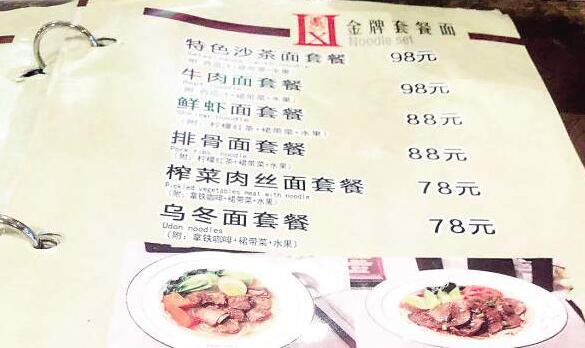 金牌套餐面
Noodle set
特色沙茶面套餐 98元
牛肉面套餐 98元
鲜虾面套餐 88元
(附: 柠檬红茶+裙带菜+水果)
排骨面套餐 88元
Pork ribs noodle
(附: 柠檬红茶+裙带菜+水果)
榨菜肉丝面套餐 78元
Pickled vegetables meat with noodle
(附: 拿铁咖啡+裙带菜+水果)
乌冬面套餐 78元
Udon noodles
(附: 拿铁咖啡+裙带菜+水果)